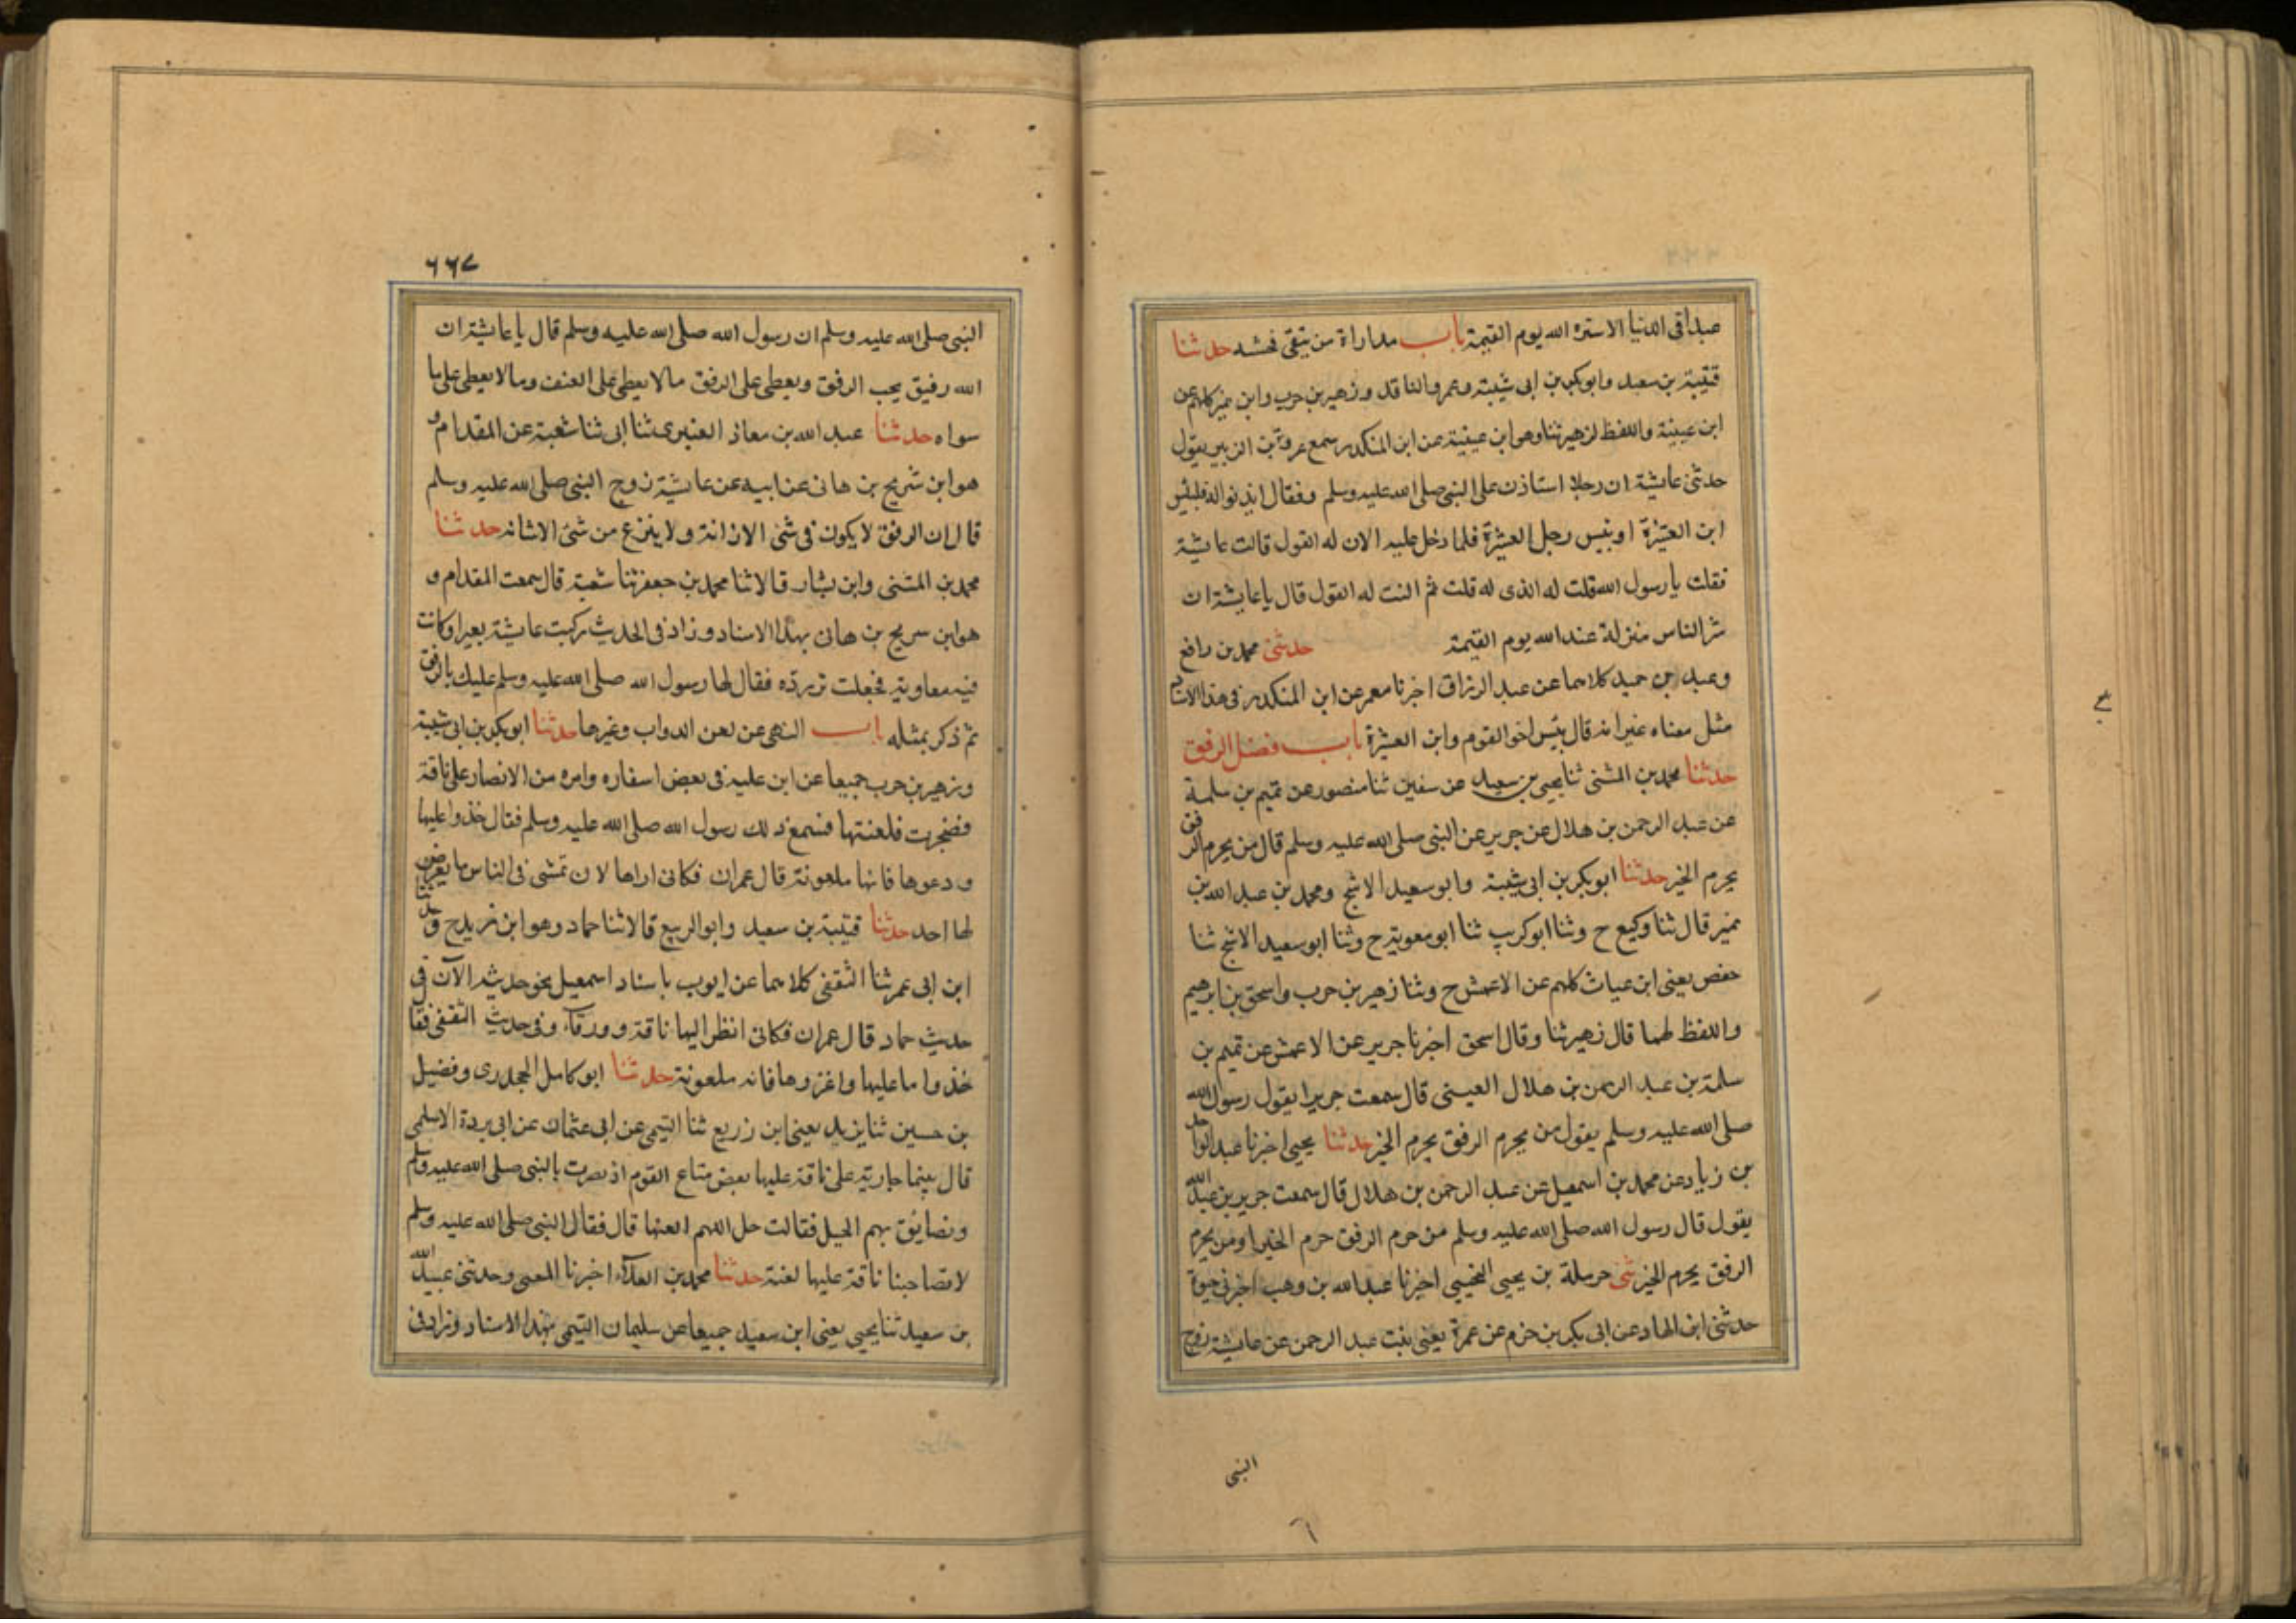 عبدا فى الدنيا الا ستره الله يوم القيمة باب مداراة من يتقى فحشه حدثنا
قتيبة بن سعيد وابو بكر بن ابى شيبة وعمرو الناقد وزهير بن حرب وابن نمير كلهم عن
ابن عيينة واللفظ لزهير ثنا وهو ابن عيينة عن ابن المنكدر سمع عروة بن الزبير يقول
حدثتنى عايشة ان رجلا استاذن على النبى صلى الله عليه وسلم فقال ايذنوا له فلبئس
ابن العشيرة او بئيس رجل العشيرة فلما دخل عليه الان له القول قالت عايشة
فقلت يا رسول الله قلت له الذى له قلت ثم النت له القول قال يا عايشة ان
شر الناس منزلة عند الله يوم القيمة حدثنى محمد بن رافع
وعبد بن حميد كلاهما عن عبد الرزاق اخبرنا معمر عن ابن المنكدر فى هذا الاسناد
مثل معناه غير انه قال بئس اخو القوم وابن العشيرة باب فضل الرفق
حدثنا محمد بن المثنى ثنا يحيى بن سعيد عن سفين ثنا منصور عن تميم بن سلمة
عن عبد الرحمن بن هلال عن جرير عن النبى صلى الله عليه وسلم قال من يحرم الرفق
يحرم الخير حدثنا ابو بكر بن ابى شيبة وابو سعيد الاشج ومحمد بن عبد الله بن
نمير قال ثنا وكيع ح وثنا ابو كريب ثنا ابو معوية ح وثنا ابو سعيد الاشج ثنا
حفص يعنى ابن غياث كلهم عن الاعمش ح وثنا زهير بن حرب واسحق بن ابرهيم
واللفظ لهما قال زهير ثنا وقال اسحق اخبرنا جرير عن الاعمش عن تميم بن
سلمة بن عبد الرحمن بن هلال العبسى قال سمعت جريرا يقول رسول الله
صلى الله عليه وسلم يقول من يحرم الرفق يحرم الخير حدثنا يحيى اخبرنا عبد الواحد
بن زياد عن محمد بن اسمعيل عن عبد الرحمن بن هلال قال سمعت جرير بن عبد الله
يقول قال رسول الله صلى الله عليه وسلم من حرم الرفق حرم الخير او من يحرم
الرفق يحرم الخير ثنى حرملة بن يحيى التجيبى اخبرنا عبد الله بن وهب اخبرنى حيوة
حدثنى ابن الهاد عن ابى بكر بن حزم عن عمرة يعنى بنت عبد الرحمن عن عايشة زوج
النبى
٦٦٧
النبى صلى الله عليه وسلم ان رسول الله صلى الله عليه وسلم قال يا عايشة ان
الله رفيق يحب الرفق ويعطى على الرفق ما لا يعطى على العنف وما لا يعطى على ما
سواه حدثنا عبيد الله بن معاذ العنبرى ثنا ابى ثنا شعبة عن المقدام و
هو ابن شريح بن هانى عن ابيه عن عايشة زوج النبى صلى الله عليه وسلم
قال ان الرفق لا يكون فى شئ الا زانه ولا ينزع من شئ الا شانه حدثنا
محمد بن المثنى وابن بشار قالا ثنا محمد بن جعفر ثنا شعبة قال سمعت المقدام و
هو ابن سريح بن هانى بهذا الاسناد وزاد فى الحديث ركبت عايشة بعيرا وكانت
فيه معاوية فجعلت تردده فقال لها رسول الله صلى الله عليه وسلم عليك بالرفق
ثم ذكر بمثله باب النهى عن لعن الدواب وغيرها حدثنا ابو بكر بن ابى شيبة
وزهير بن حرب جميعا عن ابن علية فى بعض اسفاره وامره من الانصار على ناقة
فضجرت فلعنتها فسمع ذلك رسول الله صلى الله عليه وسلم فقال خذوا عليها
ودعوها فانها ملعونة قال عمران فكانى اراها لان تمشى فى الناس ما يعرض
لها احد حدثنا قتيبة بن سعيد وابو الربيع قالا ثنا حماد وهو ابن زيد ح وحدثنا
ابن ابى عمر ثنا الثقفى كلاهما عن ايوب باسناد اسمعيل نحو حديثه الا ان فى
حديث حماد قال عمران فكانى انظر اليها ناقة وورقاء وفى حديث الثقفى فقا
خذوا ما عليها واغزوها فانه ملعونة حدثنا ابو كامل الجحدرى وفضيل
بن حسين ثنا يزيد يعنى ابن زريع ثنا التيمى عن ابى عثمان عن ابى بردة الاسلمى
قال بينما جارية على ناقة عليها بعض متاع القوم اذ بصرت بالنبى صلى الله عليه وسلم
وتضايق بهم الجبل فقالت حل اللهم العنها قال فقال النبى صلى الله عليه وسلم
لا تصاحبنا ناقة عليها لعنة حدثنا محمد بن العلاء اخبرنا المعمى وحدثنى عبيد الله
بن سعيد ثنا يحيى يعنى ابن سعيد جميعا عن سليمان التيمى بهذا الاسناد وزاد فى